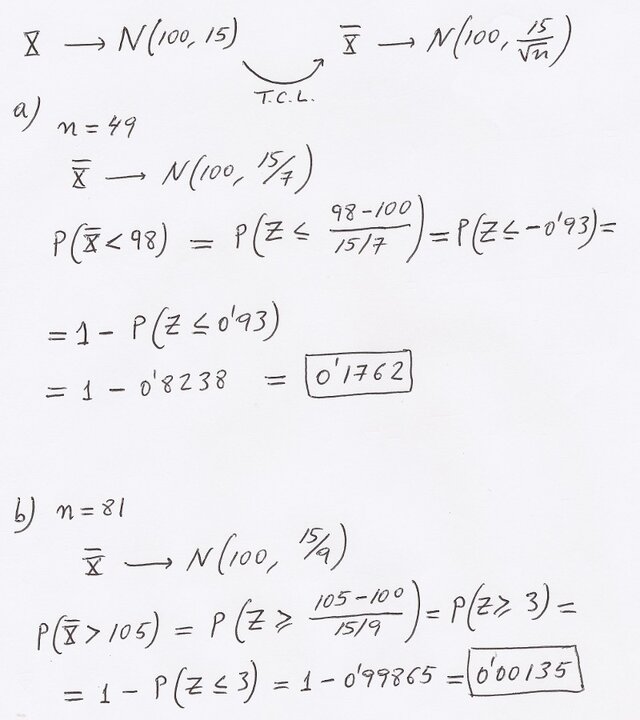 X → N(100, 15) X̅ → N(100, 15/√n)
T.C.L.
a) n = 49
X̅ → N(100, 15/7)
P(X̅ < 98) = P(Z ≤ (98-100)/(15/7)) = P(Z ≤ -0'93) =
= 1 - P(Z ≤ 0'93)
= 1 - 0'8238 = 0'1762
b) n = 81
X̅ → N(100, 15/9)
P(X̅ > 105) = P(Z ⩾ (105-100)/(15/9)) = P(Z ⩾ 3) =
= 1 - P(Z ≤ 3) = 1 - 0'99865 = 0'00135